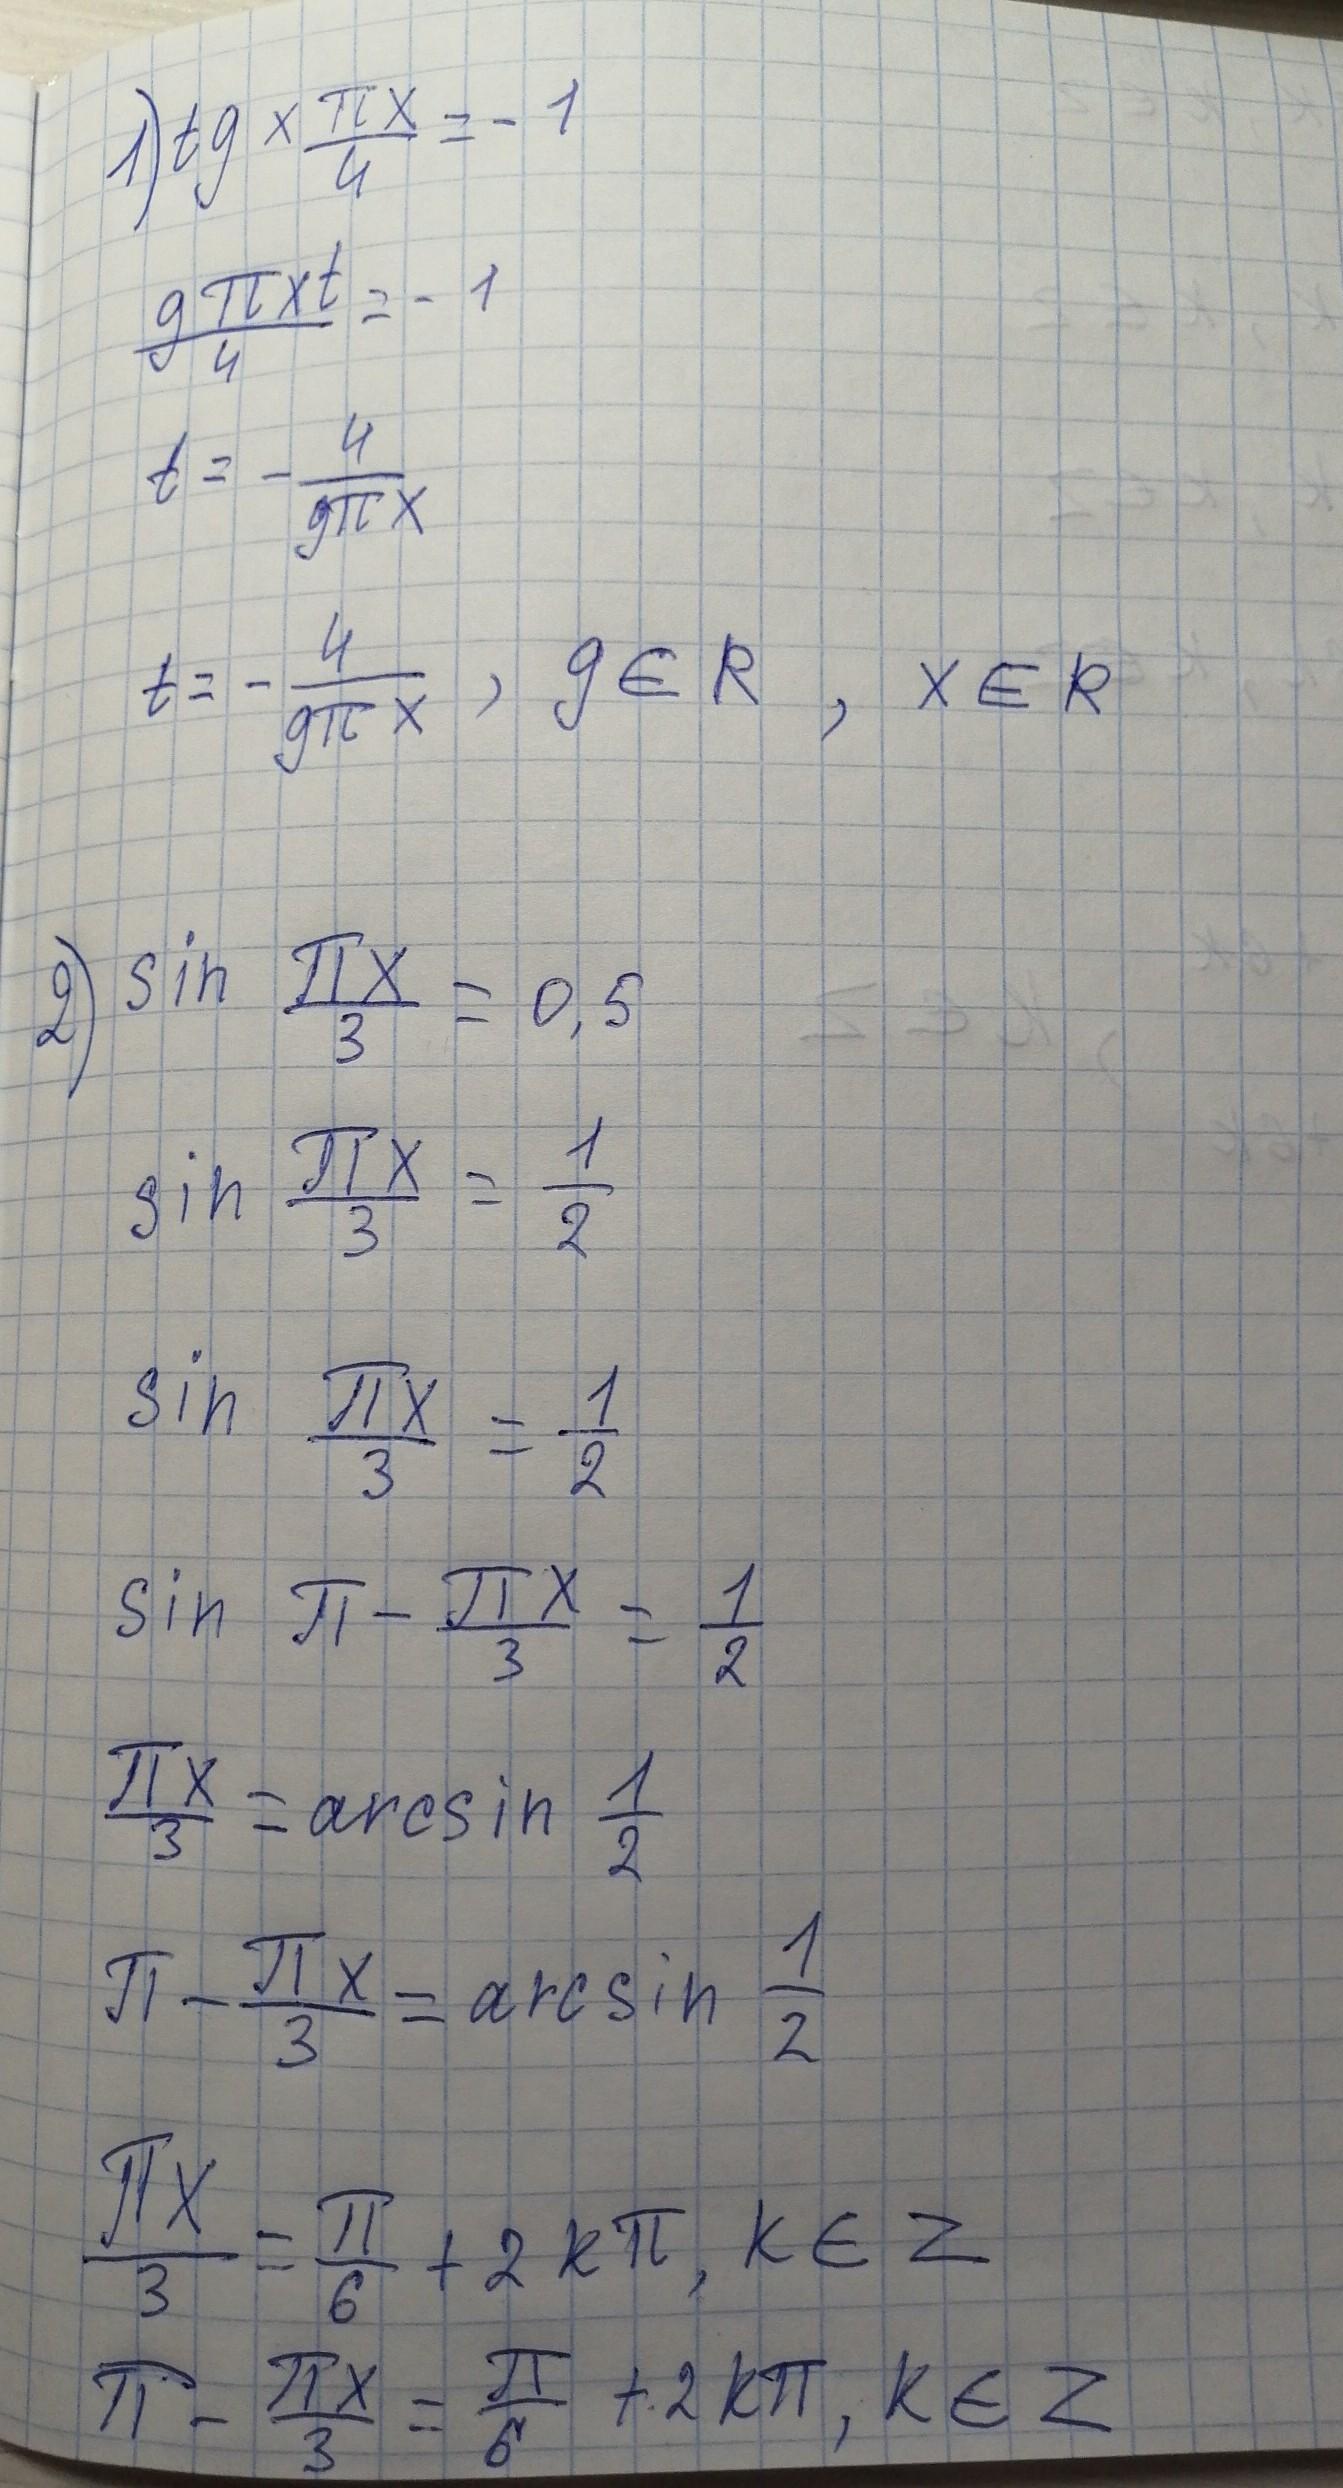 1) tg × πx/4 = - 1
gπxt/4 = - 1
t = - 4/gπx
t = - 4/gπx , g ∈ R , x ∈ R
2) sin πx/3 = 0,5
sin πx/3 = 1/2
sin πx/3 = 1/2
sin π - πx/3 = 1/2
πx/3 = arcsin 1/2
π - πx/3 = arcsin 1/2
πx/3 = π/6 + 2kπ, k ∈ Z
π - πx/3 = π/6 + 2kπ, k ∈ Z